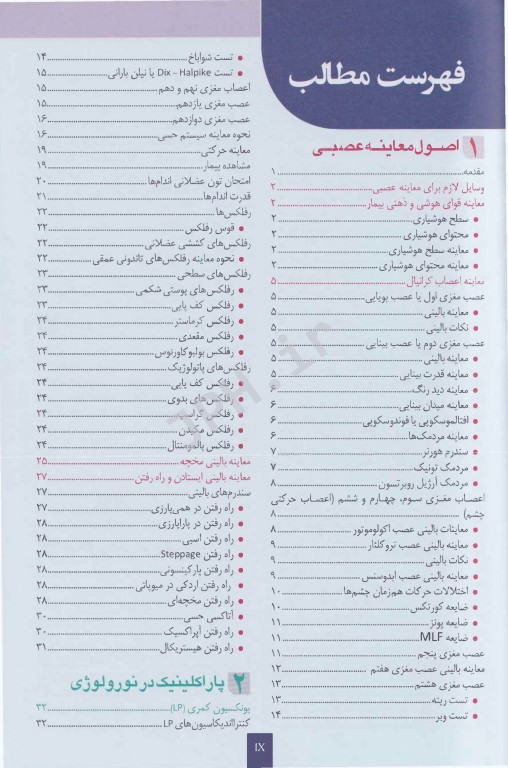 فهرست مطالب
۱ اصول معاینه عصبی
مقدمه ۱
وسایل لازم برای معاینه عصبی ۲
معاینه قوای هوشی و ذهنی بیمار ۲
• سطح هوشیاری ۲
• محتوای هوشیاری ۲
• معاینه سطح هوشیاری ۲
• معاینه محتوای هوشیاری ۲
معاینه اعصاب کرانیال ۵
عصب مغزی اول یا عصب بویایی ۵
• معاینه بالینی ۵
• نکات بالینی ۵
عصب مغزی دوم یا عصب بینایی ۵
• معاینه بالینی ۵
• معاینه قدرت بینایی ۵
• معاینه دید رنگ ۶
• معاینه میدان بینایی ۶
• افتالموسکوپی یا فوندوسکوپی ۶
• معاینه مردمک‌ها ۶
• سندرم هورنر ۷
• مردمک تونیک ۷
• مردمک آرژیل روبرتسون ۸
اعصاب مغزی سوم، چهارم و ششم (اعصاب حرکتی
چشم) ۸
• معاینات بالینی عصب اکولوموتور ۸
• معاینه بالینی عصب تروکلئار ۹
• نکات بالینی ۹
• معاینه بالینی عصب ابدوسنس ۹
• اختلالات حرکات هم‌زمان چشم‌ها ۱۰
• ضایعه کورتکس ۱۰
• ضایعه پونز ۱۱
• ضایعه MLF ۱۱
عصب مغزی پنجم ۱۱
معاینه بالینی عصب مغزی هفتم ۱۲
عصب مغزی هشتم ۱۳
• تست رینه ۱۳
• تست وبر ۱۴
• تست شواباخ ۱۴
• تست Dix – Halpike یا نیلن بارانی ۱۵
اعصاب مغزی نهم و دهم ۱۵
عصب مغزی یازدهم ۱۵
عصب مغزی دوازدهم ۱۶
نحوه معاینه سیستم حسی ۱۶
معاینه حرکتی ۱۹
مشاهده بیمار ۱۹
امتحان تون عضلانی اندام‌ها ۲۰
قدرت اندام‌ها ۲۱
رفلکس‌ها ۲۲
• قوس رفلکس ۲۲
رفلکس‌های کششی عضلانی ۲۲
• نحوه معاینه رفلکس‌های تاندونی عمقی ۲۲
رفلکس‌های سطحی ۲۳
• رفلکس‌های پوستی شکمی ۲۳
• رفلکس کف پایی ۲۳
• رفلکس کرماستر ۲۴
• رفلکس مقعدی ۲۴
• رفلکس بولبوکاورنوس ۲۴
رفلکس‌های پاتولوژیک ۲۴
• رفلکس کف پایی ۲۴
• رفلکس‌های بدوی ۲۴
• رفلکس گراسپ ۲۴
• رفلکس مکیدن ۲۴
• رفلکس پالمومنتال ۲۴
معاینه بالینی مخچه ۲۵
معاینه بالینی ایستادن و راه رفتن ۲۷
سندرم‌های بالینی ۲۷
• راه رفتن در همی‌پارزی ۲۷
• راه رفتن در پاراپارزی ۲۸
• راه رفتن اسبی ۲۸
• راه رفتن Steppage ۲۸
• راه رفتن پارکینسونی ۲۸
• راه رفتن اردکی در میوپاتی ۲۸
• راه رفتن مخچه‌ای ۲۸
• آتاکسی حسی ۳۰
• راه رفتن آپراکسیک ۳۰
• راه رفتن هیستریکال ۳۱
۲ پاراکلینیک در نورولوژی
پونکسیون کمری (LP) ۳۲
کنتراندیکاسیون‌های LP ۳۲
IX